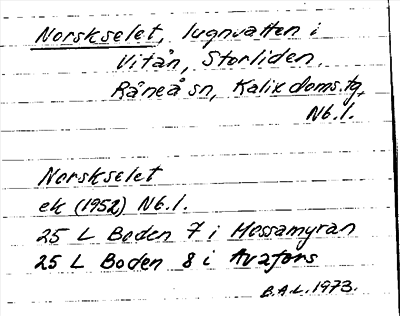 Norskselet, lugnvatten i
Vitån, Storliden,
Råneå sn, Kalix doms.tg,
Nb.l.
Norskselet
ek (1952) Nb.l.
25 L Boden 7 i Mossamyran
25 L Boden 8 i Avafors
B.A.L. 1973.